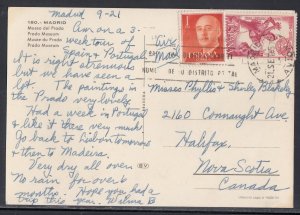 Madrid 9-21
180.- MADRID
Museo del Prado
Prado Museum
Musée du Prado
Prado Museum
Am on a 3-
week tour of
Spain & Portugal
It is right strenuous
but we have seen a
lot. The paintings in
the Prado very lovely.
Had a week in Portugal
& like it there very much
Go back to Lisbon tomorrow
& then to Madeira.
Very dry all over
No rain for over 6
months. Hope you had a
trip this year. Wilma B
Air
Mail
Misses Phyllis & Shirley
2160 Connaught Ave
Halifax,
Nova Scotia
Canada